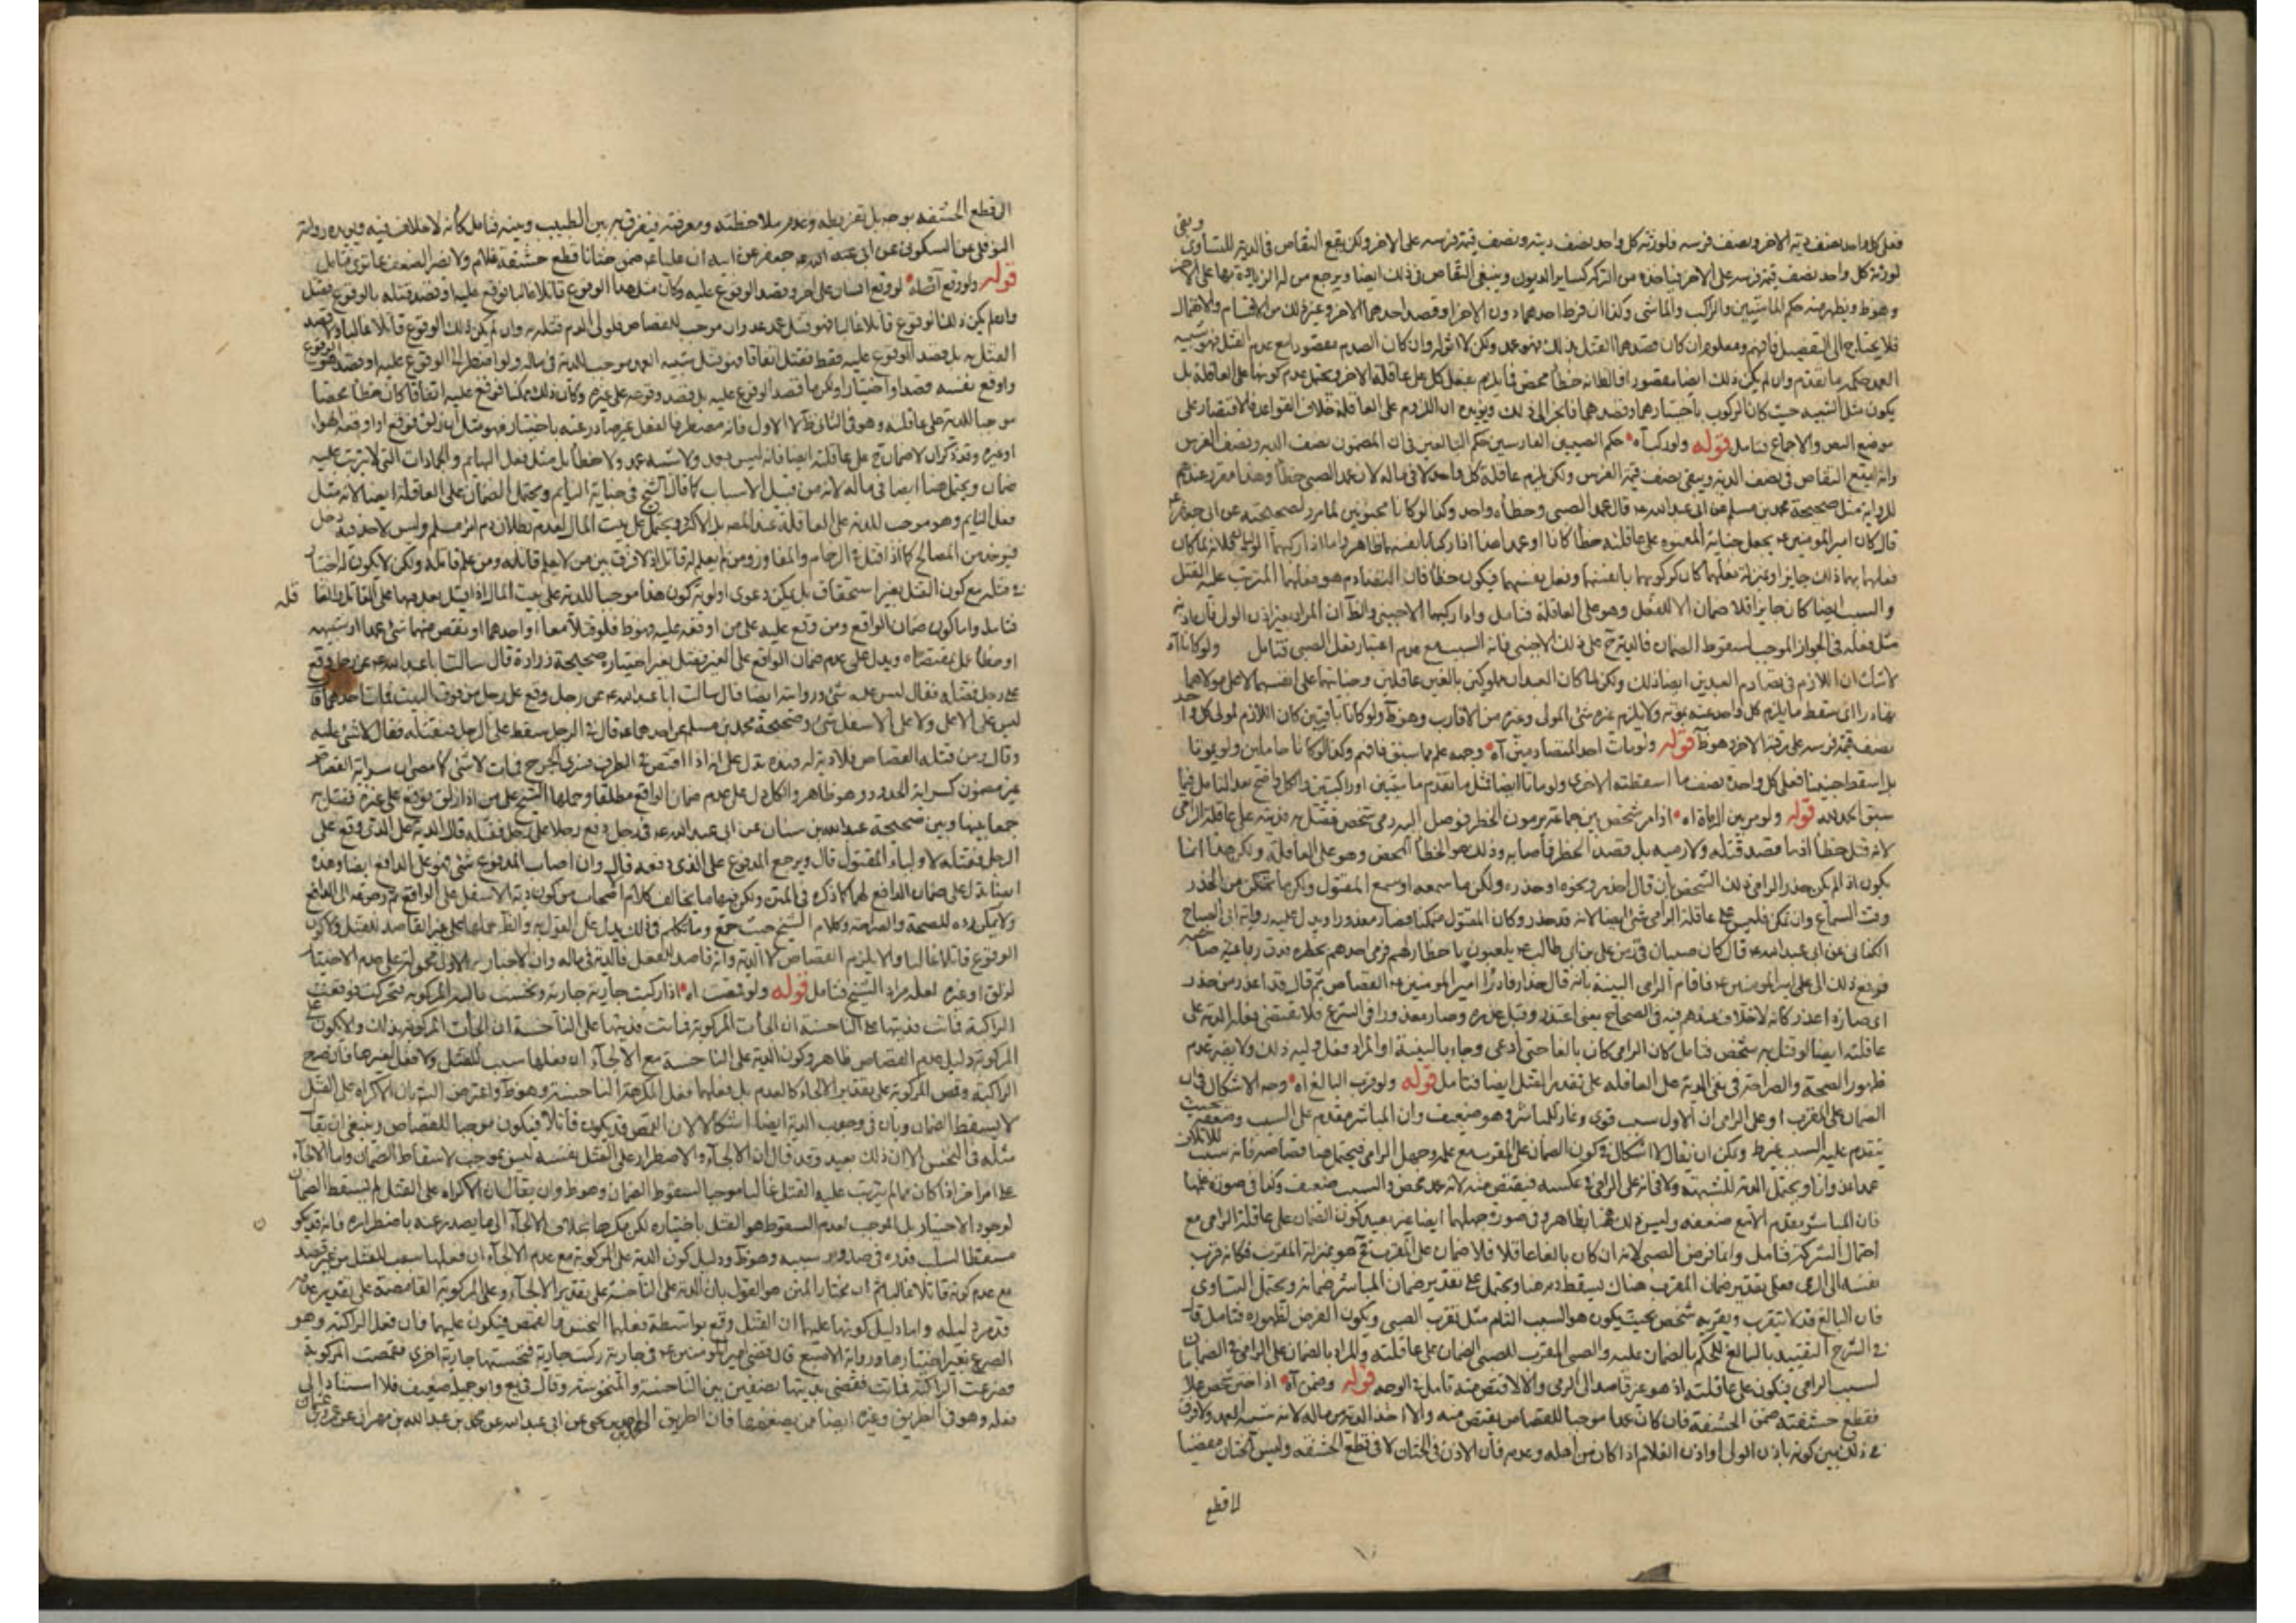 فعلى كل واحد نصف دية الاخر ونصف فرسه فلورثة كل واحد نصف ديته ونصف قيمة فرسه على الاخر ولكن يقع التقاص فى الدية للتساوى ويبقى
لورثة كل واحد نصف قيمة فرسه على الاخر فياخذه من التركة كساير الديون وينبغى التقاص فى ذلك ايضا ويرجع من له الزيادة بها على الاخر
وهو ظ ويظهر منه حكم الماشيين والراكب والماشى وكذا ان فرط احدهما دون الاخر او قصد احدهما الاخر وغير ذلك من الاقسام والاحتمال
فلا يحتاج الى التفصيل فافهم ومعلوم ان كان قصدهما القتل بذلك فهو عمد ولكن لا اثر له وان كان الصدم مقصودا مع عدم القتل فهو شبيه
العمد حكمه ما تقدم وان لم يكن ذلك ايضا مقصودا فالظ انه خطأ محض فيلزم بفعل كل على عاقلة الاخر ويحتمل عدم كونها على العاقلة بل
يكون مثل الشبيه حيث كان الركوب باختيارهما وقصدهما فانجر الى ذلك ويؤيده ان اللزوم على العاقلة خلاف القواعد فالاقتصار على
موضع النص والاجماع فتامل قوله ولو ركبا آه حكم الصبيين الفارسين حكم البالغين فى ان المضمون نصف الدية ونصف الفرس
وانه يقع التقاص فى نصف الدية ويبقى نصف قيمة الفرس ولكن يلزم عاقلة كل واحد لا فى ماله لان عمد الصبى خطأ وهذا مقرر عندهم
للرواية مثل صحيحة محمد بن مسلم عن ابى عبد الله ع قال عمد الصبى وخطأه واحد وكذا لو كانا مجنونين لما مر ولصحيحته عن ابى جعفر ع
قال كان امير المؤمنين ع يجعل جناية المعتوه على عاقلته خطأ كانا او عمدا هذا اذا ركبا بانفسهما ظاهر واما اذا اركبهما الولى فلانه لما كان
فعلهما بهما ذلك جايزا وبمنزلة فعلهما كان كركوبهما بانفسهما وفعل بفسهما فيكون خطأ فان التصادم هو فعلهما المترتب عليه القتل
والسبب ايضا كان جايزا فلا ضمان الا للفعل وهو على العاقلة فتامل واذا اركبهما الاجنبى والظ ان المراد بغير اذن الولى فان اذنه
مثل فعله فى الجواز الموجب لسقوط الضمان فالدية ح على ذلك الاجنبى فانه السبب مع عدم اعتبار فعل الصبى فتامل ولو كانا آه
لا شك ان اللازم فى تصادم العبدين ايضا ذلك ولكن لما كان العبدان مملوكين بالغين عاقلين وجنايتهما على انفسهما لا على مولاهما
تهادرا اى سقط ما يلزم كل واحد عنه بموته ولا يلزم غيره شئ المولى وغيره من الاقارب وهو ظ ولو كانا باقيين كان اللازم لمولى كل واحد
نصف قيمة فرسه على رقبة الاخر وهو ظ قوله ولو مات احد المتصادمين آه وجهه علم مما سبق فافهم وكذا لو كانا حاملين ولو يموتا
بل اسقطا جنينا فعلى كل واحدة نصف ما اسقطته الاخرى ولو ماتا ايضا فمثل ما تقدم ماشيتين او راكبتين والكل واضح بعد التامل فيما
سبق الحمد لله قوله ولو مر بين الرماة آه اذا مر شخص بين جماعة يرمون الخطر فوصل اليه رمى شخص فقتل به فديته على عاقلة الرامى
لانه قتل خطأ اذ ما قصد قتله ولا رميه بل قصد الخطر فاصابه وذلك هو الخطأ المحض وهو على العاقلة ولكن هذا انما
يكون اذا لم يكن حذر الرامى ذلك الشخص بان قال احذر ونحوه او حذره ولكن ما سمعه او سمع المقتول ولكن ما تمكن من الحذر
وقت السماع وان تمكن فليس على عاقلة الرامى شئ ايضا لانه قد حذر وكان المقتول متمكنا فصار معذورا ويدل عليه رواية ابى الصباح
الكنانى عن ابى عبد الله ع قال كان صبيان فى زمن على بن ابى طالب ع يلعبون باخطار لهم فرمى احدهم بخطره فدق رباعية صاحبه
فرفع ذلك الى على امير المؤمنين ع فاقام الرامى البينة بانه قال حذار فادرأ امير المؤمنين ع القصاص ثم قال قد اعذر من حذر
اى صار ذا عذر كانه لا خلاف عندهم فيه فى الصحاح يعنى اعتذر وقبل عذره وصار معذورا فى الشرع فلا يقتضى فعله الدية على
عاقلته ايضا لو قتل به شخص فتامل كان الرامى كان بالغا حتى ادعى وجاء بالبينة او المراد فعل وليه ذلك ولا يضر عدم
ظهور الصحة والصراحة فى نفى الدية على العاقله على تقدير القتل ايضا فتامل قوله ولو قرب البالغ آه وجه الاشكال فى ان
الضمان على المقرب او على الرامى ان الاول سبب قوى وغار للمباشر وهو ضعيف وان المباشر مقدم على السبب وضعفه بحيث
يتقدم عليه السبب غير ظ ويمكن ان يقال لا اشكال فى كون الضمان على المقرب مع علمه وجهل الرامى فيحتمل هنا قصاصه فانه سبب للاتلاف
عمدا عدوانا ويحتمل الدية للشبهة ولا فى انه على الرامى فى عكسه فيقتص منه لانه عمد محض والسبب ضعيف وكذا فى صورة علمهما
فان المباشر مقدم الا مع ضعفه وليس ذلك هنا بظاهر وفى صورة جهلهما ايضا غير بعيد كون الضمان على عاقلة الرامى مع
احتمال الشركة فتامل وانما فرض الصبى لانه ان كان بالغا عاقلا فلا ضمان على المقرب ح هو بمنزلة المقرب فكانه قرب
نفسه الى الرمى فعلى تقدير ضمان المقرب هناك يسقط دمه هنا ويحتمل على تقدير ضمان المباشر ضمانه ويحتمل التساوى
فان البالغ قد لا يتقرب ويقربه شخص بحيث يكون هو السبب التام مثل تقرب الصبى ويكون الغرض لظهوره فتامل قال
فى الشرح التقييد بالبالغ للحكم بالضمان عليه والصبى المقرب للصبى الضمان على عاقلته والمراد بالضمان على الرامى فى الضمان
لسبب الرامى فيكون على عاقلته اذ هو غير قاصد الى الرمى والا لاقتص منه تامل فى الوجه قوله وضمن آه اذا ختن شخص غلاما
فقطع حشفته ضمن الحشفة فان كان عمدا موجبا للقصاص يقتص منه والا اخذ الدية من ماله لانه شبيه العمد ولا فرق
فى ذلك بين كونه باذن الولى او اذن الغلام اذا كان من اهله وعدمه فان الاذن فى الختان لا فى قطع الحشفه وليس الختان مفضيا
لا قطع
الى قطع الحشفه بوجه بل تفريطه وعدم ملاحظته ومعرفته فيفرق به بين الطبيب وبينه فتامل كأنه لا خلاف فيه ويؤيده رواية
النوفلى عن السكونى عن ابى عبد الله ع جعفر عن ابيه ان عليا ع ضمن ختانا قطع حشفة غلام ولا يضر الضعف بما ترى فتامل
قوله ولو وقع آه لو وقع انسان على اخر وقصد الوقوع عليه وكان مثل هذا الوقوع قاتلا غالبا فوقع عليه او قصد قتله بالوقوع فقتل
وان لم يكن ذلك الوقوع قاتلا غالبا فهو قتل عمد عدوان موجب للقصاص فلولى الدم قتله به وان لم يكن ذلك الوقوع قاتلا غالبا ولا قصد
القتل به بل قصد الوقوع عليه فقط فقتل اتفاقا فهو قتل شبيه العمد موجب للدية فى ماله ولو اضطر الى الوقوع عليه او قصد الوقوع
واوقع نفسه قصدا واختيارا ولكن ما قصد الوقوع عليه بل قصد وقوعه على غيره وكان ذلك ممكنا فوقع عليه اتفاقا كان خطأ محضا
موجبا للدية على عاقلته وهو فى الثانى ظ لا الاول فانه مضطر فالفعل غير صادر عنه باختيار فهو مثل ان زلق فوقع او اوقعه الهواء
او غيره وقد ذكر ان لا ضمان ح على عاقلته ايضا فانه ليس بعمد ولا شبه عمد ولا خطأ بل مثل فعل البهايم والجمادات التى لا يترتب عليه
ضمان ويحتمل هنا ايضا فى ماله لانه من قبيل الاسباب كما قال الشيخ فى جناية النايم ويحتمل الضمان على العاقلة ايضا لانه مثل
فعل النايم وهو موجب للدية على العاقلة عند المص بل الاكثر ويحتمل على بيت المال لعدم بطلان دم امرء مسلم وليس لاحد فيه دخل
فيؤخذ من المصالح كما اذا قتل فى الزحام والمفاوز ومن لم يعلم له قاتل اذ لا فرق بين من لا يعلم قاتله ومن علم قاتله ولكن لا يكون له اختيار
فى قتله مع كون القتل بغير استحقاق بل يمكن دعوى اولوية كون هذا موجبا للدية على بيت المال اذا قيل بعدمها على القاتل والعاقلة
فتامل واما كون ضمان الواقع ومن وقع عليه على من اوقعه عليه فهو ظ فلو قتلا معا او احدهما او نقص منهما شئ عمدا او شبهه
او خطأ عمل بمقتضاه ويدل على عدم ضمان الواقع على الغير فقتل بغير اختياره صحيحة زرارة قال سالت ابا عبد الله ع عن رجل وقع
على رجل فقتله فقال ليس عليه شئ ورواية ايضا قال سالت ابا عبد الله ع عن رجل وقع على رجل من فوق البيت فمات احدهما قال
ليس على الاعلى ولا على الاسفل شئ وصحيحة محمد بن مسلم عن احدهما ع قال فى الرجل سقط على الرجل فيقتله فقال لا شئ عليه
وقال من قتله القصاص فلا دية له وهذه تدل على انه اذا اقتص فى الطرف فسرى الجرح فمات لا شئ كما مر ان سراية القصاص
غير مضمون كسراية الحدود وهو ظاهر والكل دل على عدم ضمان الواقع مطلقا وحملها الشيخ على من اذا زلق فوقع على غيره فقتل به
جمعا بينها وبين صحيحة عبد الله بن سنان عن ابى عبد الله ع فى رجل دفع رجلا على رجل فقتله قال الدية على الذى وقع على
الرجل فقتله لاولياء المقتول قال ويرجع المدفوع على الذى دفعه قال وان اصاب المدفوع شئ فهو على الدافع ايضا وهذه
ايضا تدل على ضمان الدافع لهما كما ذكره فى المتن ولكن فيها ما يخالف كلام اصحاب من كون دية الاسفل على الواقع ثم رجوعه الى الدافع
ولا يمكن رده للصحة والصراحة وكلام الشيخ حيث جمع وما تكلم فى ذلك يدل على القول به والظ حملها على غير القاصد للقتل ولا كون
الوقوع قاتلا غالبا والا يلزم القصاص لا الدية وانه قاصد للفعل فالدية فى ماله وان الاخبار الاول محمولة على عدم الاختيار
لزلق او غيره لعله مراد الشيخ فتامل قوله ولو قمصت آه اذا ركبت جارية جارية ونخست ثالثة المركوبة فتحركت فوقعت
الراكبة فماتت فديتها على الناخسة ان الجأت المركوبة فماتت فديتها على الناخسة ان الجأت المركوبة بذلك والا يكون على
المركوبة دليل عدم القصاص ظاهر وكون الدية على الناخسة مع الالجاء ان فعلها سبب للقتل ولا فعل لغيرها فان وقع
الراكبة وقمص المركوبة على تقدير الالجاء كالعدم بل فعلهما فعل المكرهة الناخسة وهو ظ واعترض الشارح بان الاكراه على القتل
لا يسقط الضمان وبان فى وجوب الدية ايضا اشكالا لان القمص قد يكون قاتلا فيكون موجبا للقصاص وينبغى ان يقال
مثله فى النخس الا ان ذلك بعيد وقد قال ان الالجاء والاضطرار على القتل بنفسه ليس بموجب لاسقاط الضمان واما الالجاء
على امر اخر اذا كان مما لم يترتب عليه القتل غالبا موجبا لسقوط الضمان وهو ظ وان يقال ان الاكراه على القتل لم يسقط الضمان
لوجود الاختيار بل الموجب لعدم السقوط هو القتل باختياره لكن مكرها بخلاف الالجاء الى ما يصدر عنه باضطراره فانه قد يكون
مسقطا لسلب قدره فى صدور سببه وهو ظ ودليل كون الدية على المركوبة مع عدم الالجاء ان فعلها سبب للقتل من غير قصد
مع عدم كونه قاتلا غالبا ثم ان مختار المتن هو القول بان الدية على الناخسة على تقدير الالجاء وعلى المركوبة القامصة على تقدير عدمه
قد مر دليله واما دليل كونها عليهما ان القتل وقع بواسطة فعلهما النخس والقمص فيكون عليهما فان فعل الراكبة وهو
الصرع بغير اختيارها ورواية الاصبغ قال قضى امير المؤمنين ع فى جارية ركبت جارية فنخستها جارية اخرى فقمصت المركوبة
فصرعت الراكبة فماتت فقضى بديتها نصفين بين الناخسة والمنخوسة وقال فى يع وابو جميلة ضعيف فلا استناد الى
فعله وهو فى الطريق وغيره ايضا ممن يضعفها فان الطريق محمد بن احمد بن يحيى عن ابى عبد الله عن محمد بن عبد الله بن مهران عن عمرو بن عثمان